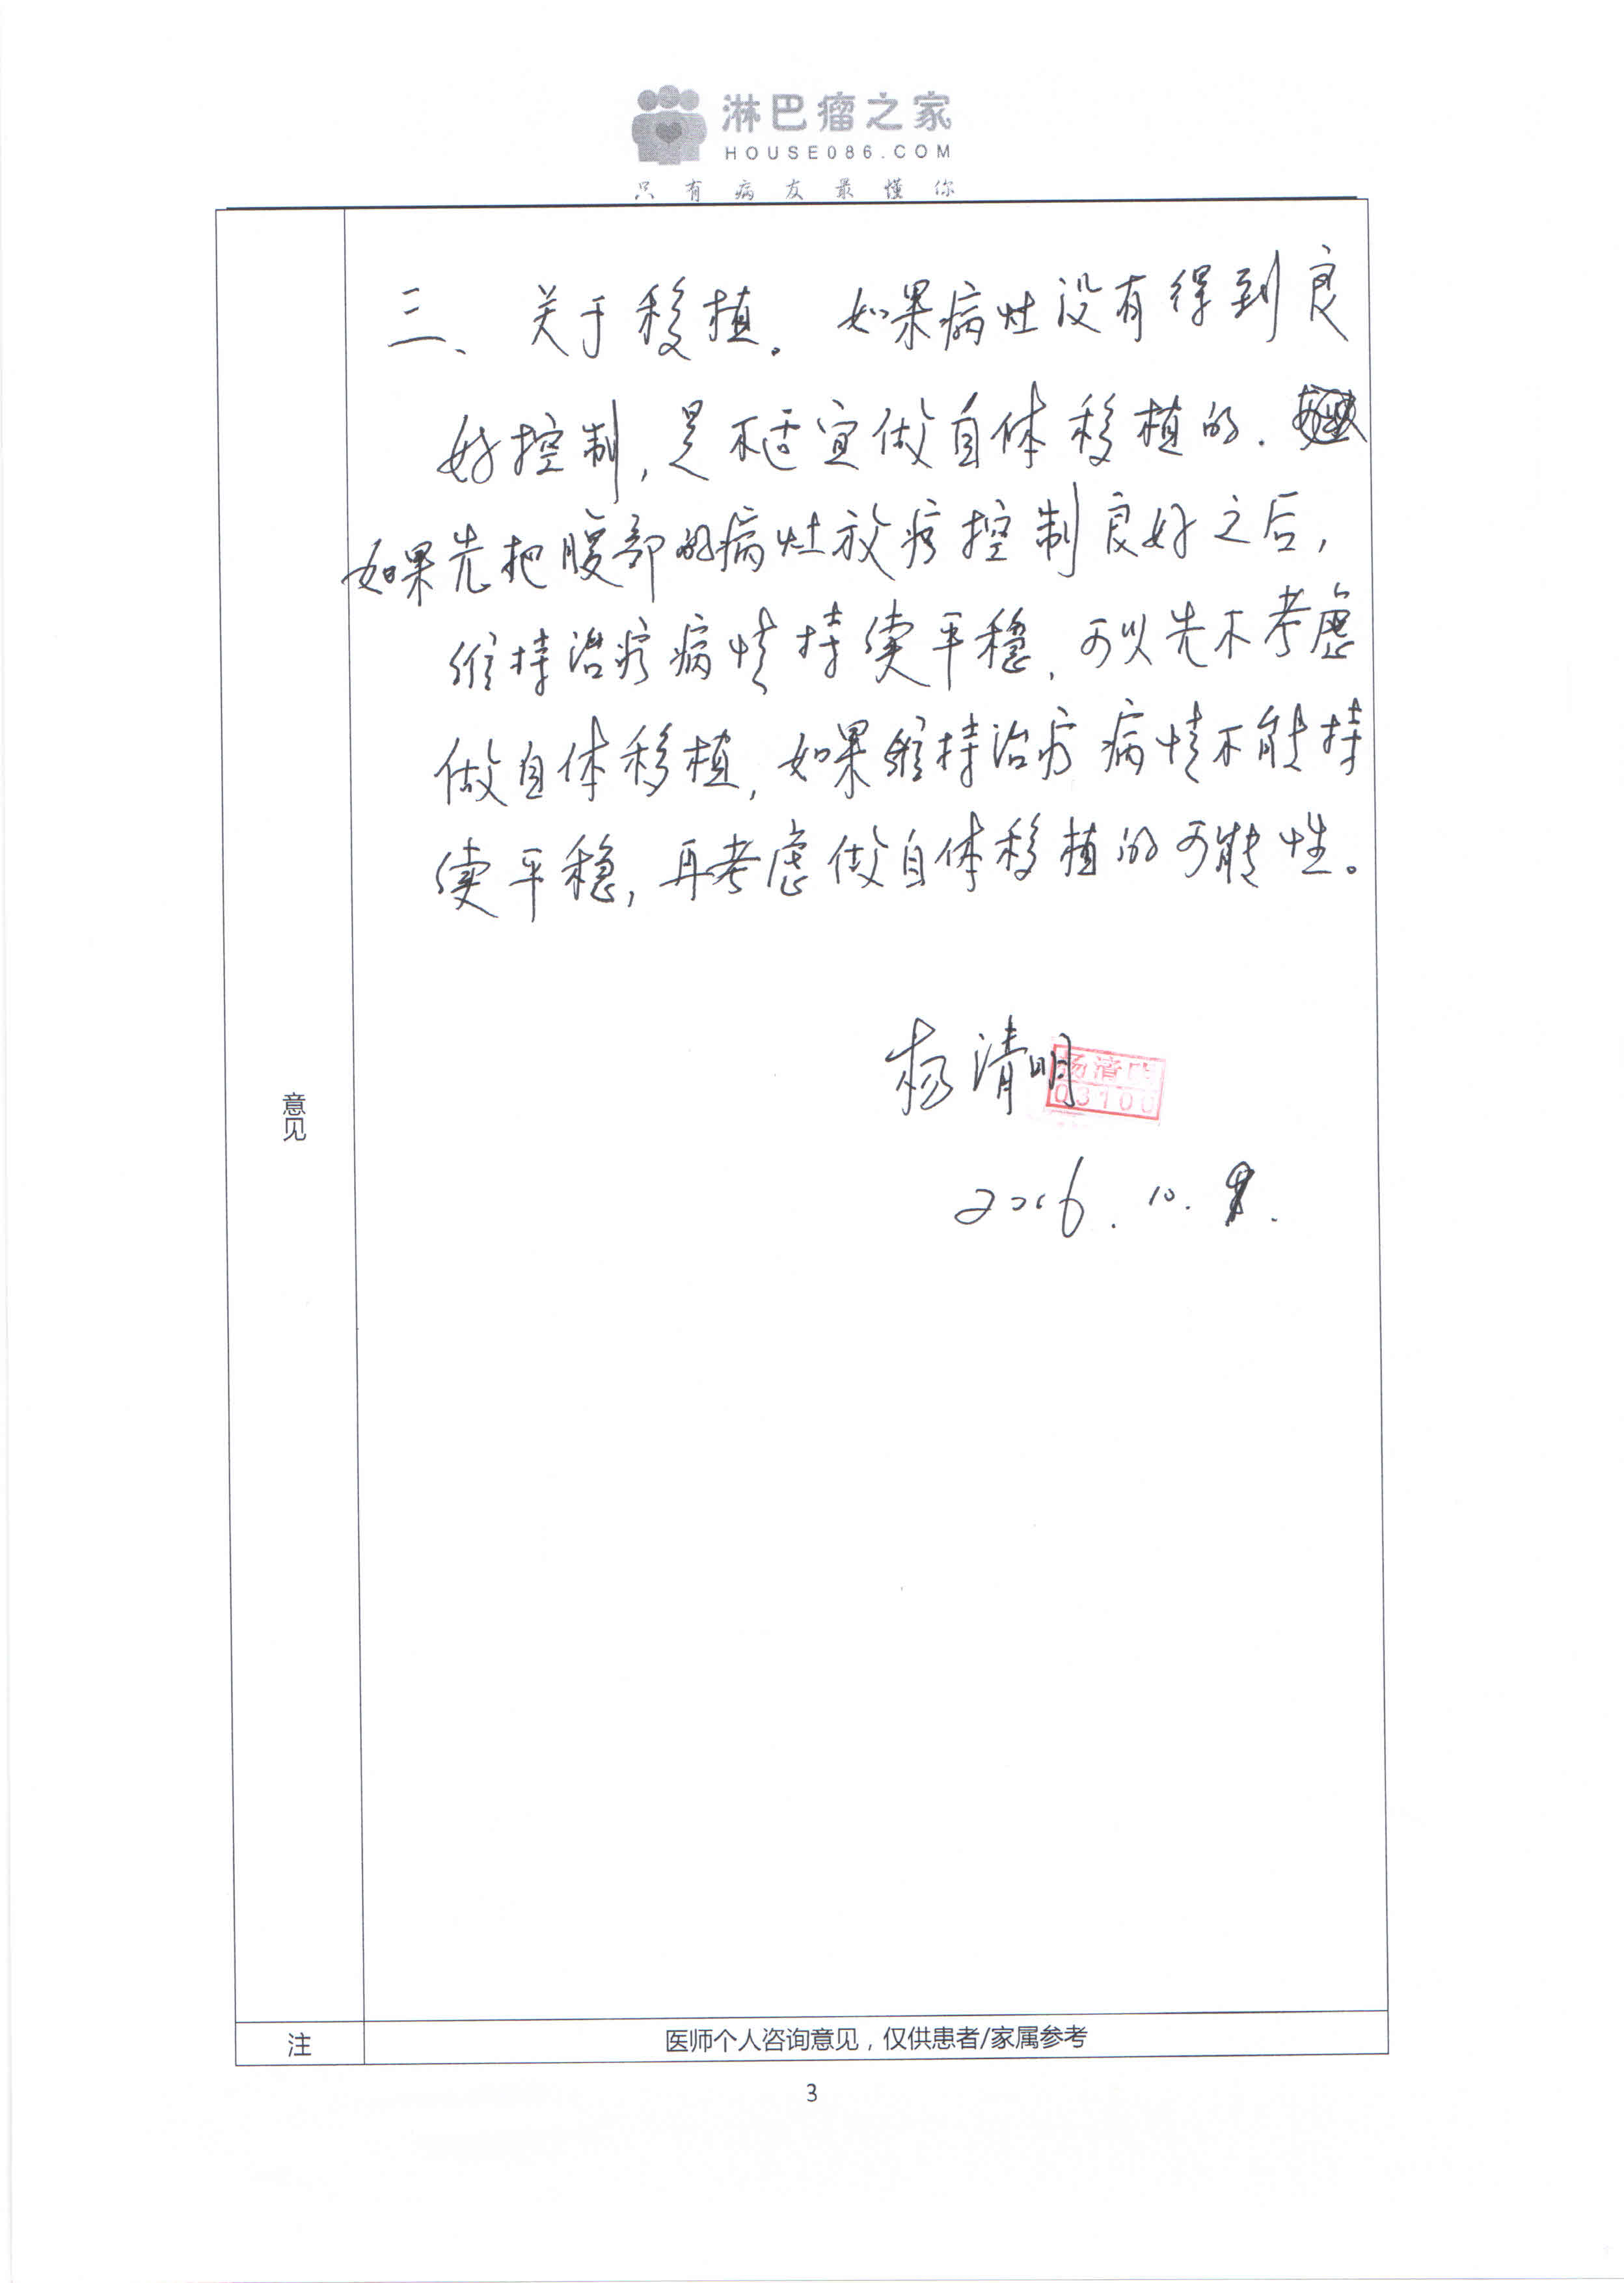 淋巴瘤之家
HOUSE086.COM
只有病友最懂你
三、关于移植。如果病灶没有得到良
好控制,是不适宜做自体移植的.
如果先把腹部的病灶放疗控制良好之后,
维持治疗病情持续平稳,可以先不考虑
做自体移植,如果维持治疗病情不能持
续平稳,再考虑做自体移植的可能性。
杨清明
杨清明
03100
2016.10.
意见
注
医师个人咨询意见，仅供患者/家属参考
3